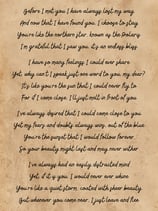 Before I met you I have always lost my way
And now that I have found you, I choose to stay
You're like the northern star, known as the Polaris
I'm grateful that I saw you, it's an endless bliss
I have so many feelings I could ever share
Yet, why can't I speak just one word to you, my dear?
It's like you're the sun that I could never fly to
For if I come close, I'll just melt in front of you
I've always desired that I could come close to you
Yet my fears and doubts always way, out of the blue
You're the sunset that I would follow forever
So your beauty might last and may never wither
I've always had an easily distracted mind
Yet, if it is you, I would never ever whine
You're like a quiet storm, coated with sheer beauty
But whenever you come near, I just leave and flee